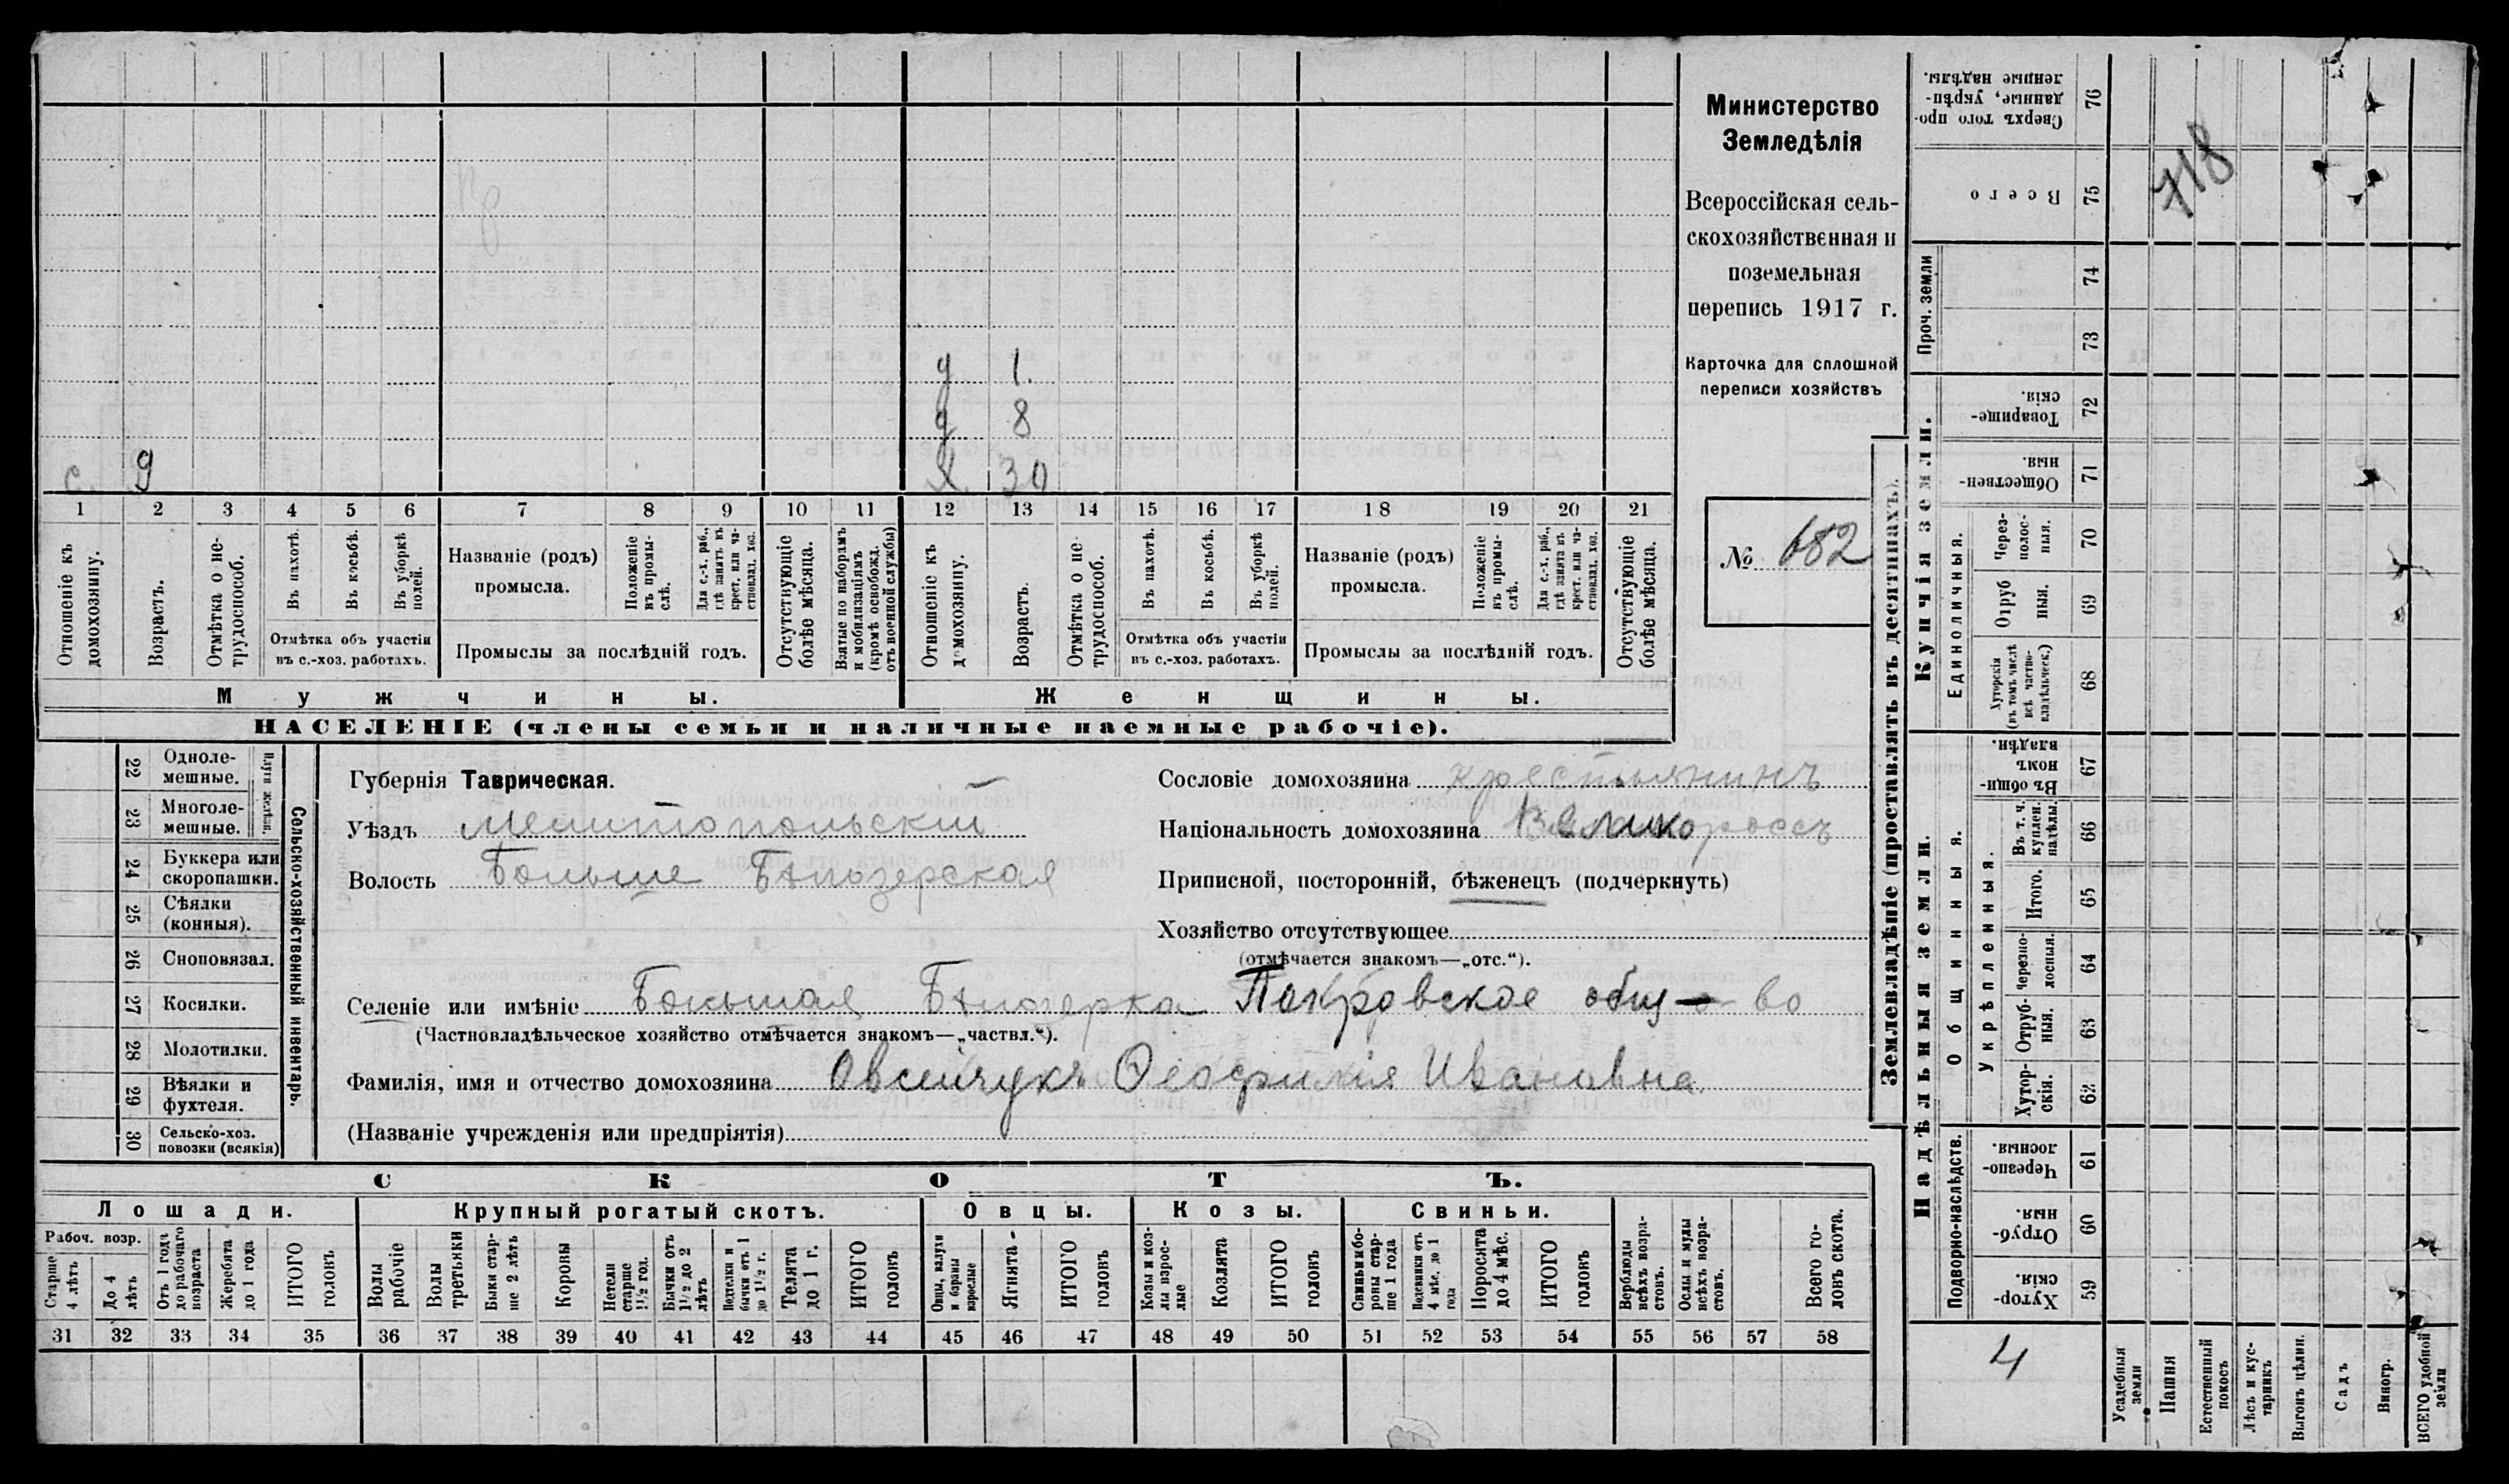 Министерство
Земледѣлія
Всероссійская сель-
скохозяйственная и
поземельная
перепись 1917 г.
Карточка для сплошной
переписи хозяйствъ
№ 682
718
д 1.
д 8
х 30
с. 9
1 2 3 4 5 6 7 8 9 10 11 12 13 14 15 16 17 18 19 20 21
Отношеніе къ домохозяину.
Возрастъ.
Отмѣтка о не-трудоспособ.
Въ пахотѣ.
Въ косьбѣ.
Въ уборкѣ полей.
Отмѣтка объ участіи
въ с.-хоз. работахъ.
Названіе (родъ)
промысла.
Положеніе въ промы-слѣ.
Для с.-х. раб., гдѣ занятъ въ крест. или ча-стновлад. хоз.
Промыслы за послѣдній годъ.
Отсутствующіе болѣе мѣсяца.
Взятые по наборамъ и мобилизаціямъ (кромѣ освобожд. отъ военной службы)
Отношеніе къ домохозяину.
Возрастъ.
Отмѣтка о не-трудоспособ.
Въ пахотѣ.
Въ косьбѣ.
Въ уборкѣ полей.
Отмѣтка объ участіи
въ с.-хоз. работахъ.
Названіе (родъ)
промысла.
Положеніе въ промы-слѣ.
Для с.-х. раб., гдѣ занята въ крест. или ча-стновлад. хоз.
Промыслы за послѣдній годъ.
Отсутствующіе болѣе мѣсяца.
Мужчины.
Женщины.
НАСЕЛЕНІЕ (члены семьи и наличные наемные рабочіе).
Сельско-хозяйственный инвентарь.
Плуги желѣзн.
22 Одноле-мешные.
23 Многоле-мешные.
24 Буккера или скоропашки.
25 Сѣялки (конныя).
26 Сноповязал.
27 Косилки.
28 Молотилки.
29 Вѣялки и фухтеля.
30 Сельско-хоз. повозки (всякія)
Губернія Таврическая.
Уѣздъ Мелитопольскій
Волость Больше Бѣлозерская
Сословіе домохозяина крестьянинъ
Національность домохозяина Великороссъ
Приписной, посторонній, бѣженецъ (подчеркнуть)
Хозяйство отсутствующее
(отмѣчается знакомъ—„отс.“).
Селеніе или имѣніе Большая Бѣлозерка Покровское общ-во
(Частновладѣльческое хозяйство отмѣчается знакомъ—„частвл.“).
Фамилія, имя и отчество домохозяина Овсейчукъ Феофилія Ивановна.
(Названіе учрежденія или предпріятія)
СКОТЪ.
Лошади.
Крупный рогатый скотъ.
Овцы.
Козы.
Свиньи.
Рабоч. возр.
Старше 4 лѣтъ
До 4 лѣтъ
Отъ 1 года до рабочаго возраста
Жеребята до 1 года
ИТОГО головъ
Волы рабочіе
Волы третьяки
Быки стар-ше 2 лѣтъ
Коровы
Нетели старше 1½ год.
Бычки отъ 1½ до 2 лѣтъ
Нетелки и бычки отъ 1 до 1½ г.
Телята до 1 г.
ИТОГО головъ
Овцы, валухи и бараны взрослые
Ягнята
ИТОГО головъ
Козы и коз-лы взрос-лые
Козлята
ИТОГО головъ
Свиньи и бо-ровы стар-ше 1 года
Подсвинки отъ 4 мѣс. до 1 года
Поросята до 4 мѣс.
ИТОГО головъ
Верблюды всѣхъ возра-стовъ.
Ослы и мулы всѣхъ возра-стовъ.
Всего го-ловъ скота.
31 32 33 34 35 36 37 38 39 40 41 42 43 44 45 46 47 48 49 50 51 52 53 54 55 56 57 58
Землевладѣніе (проставлять въ десятинахъ).
Купчія земли.
Надѣльныя земли.
Проч. земли
Единоличныя.
Общинныя.
Укрѣпленныя.
Подворно-наслѣдств.
76 Сверхъ того про-данные, укрѣп-ленные надѣлы.
75 Всего
74
73
72 Товарище-скія.
71 Обществен-ныя.
70 Через-полос-ныя.
69 Отруб ныя.
68 Хуторскія (въ томъ числѣ всѣ частно-владѣльческ.)
67 Въ общи-номъ владѣн.
66 Въ т. ч. куплен. надѣлы.
65 Итого.
64 Черезпо-лосныя.
63 Отруб-ныя.
62 Хутор-скія.
61 Черезпо-лосныя.
60 Отруб-ныя.
59 Хутор-скія.
4
Усадебныя земли
Пашня
Естественный покосъ
Лѣсъ и кус-тарникъ
Выгонъ цѣлин.
Садъ
Виногр.
ВСЕГО удобной земли